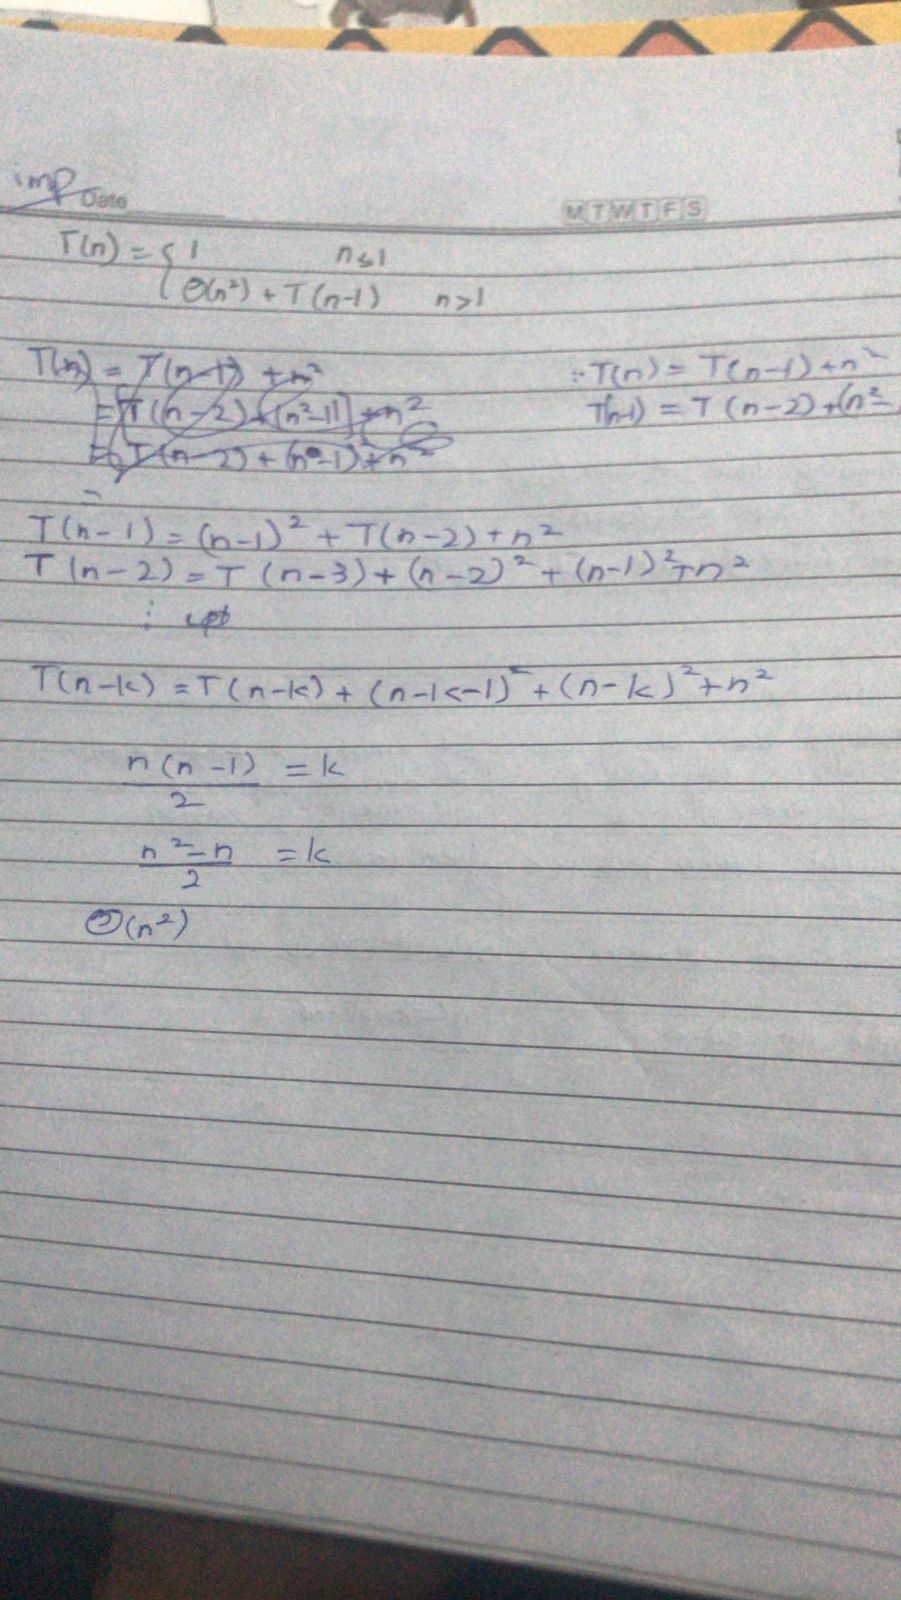 imp
Date
M T W T F S
T(n) = { 1 n≤1
Θ(n²) + T(n-1) n>1
T(n) = T(n-1) + n²
= [T(n-2) + (n²-1)] + n²
= T(n-2) + (n-1)² + n²
∴ T(n) = T(n-1) + n²
T(n-1) = T(n-2) + (n²-
=
T(n-1) = (n-1)² + T(n-2) + n²
T(n-2) = T(n-3) + (n-2)² + (n-1)² + n²
⋮
T(n-k) = T(n-k) + (n-k-1)² + (n-k)² + n²
n(n-1)/2 = k
n²-n/2 = k
Θ(n²)